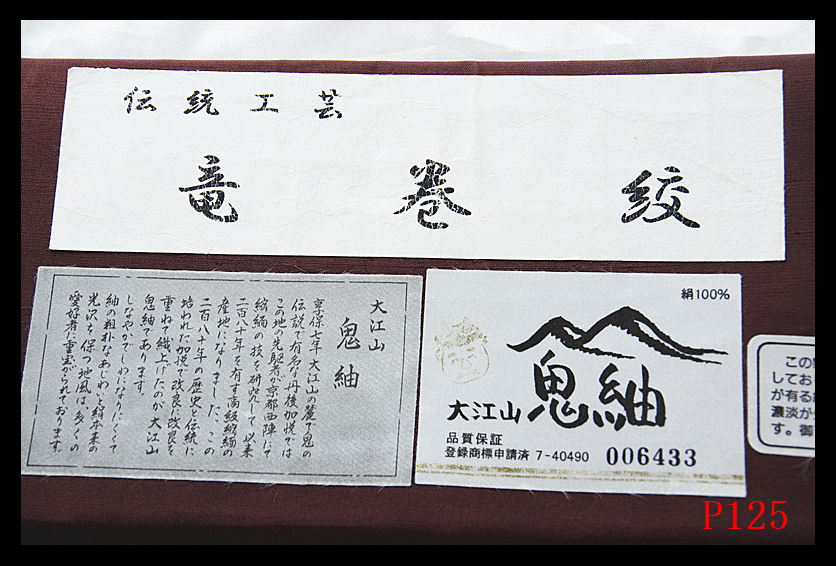 伝統工芸
竜巻絞
大江山
鬼紬
享保七年 大江山の麓で鬼の
伝説で有名な丹後加悦では
この地の先駆者が京都西陣にて
縮緬の技を研究して以来
二百八十年を有す高級縮緬の
産地になりました。この
二百八十年の歴史と伝統に
培われた加悦で改良に改良を
重ねて織上げたのが大江山
鬼紬であります。
しなやかでしわになりにくくて
紬の粗朴なあじわいと絹本来の
光沢を保つ地風は多くの
愛好者に重宝がられております。
絹100%
大江山 鬼紬
品質保証
登録商標申請済 7-40490 006433
この
してお
が有る
濃淡が
す。御
P125